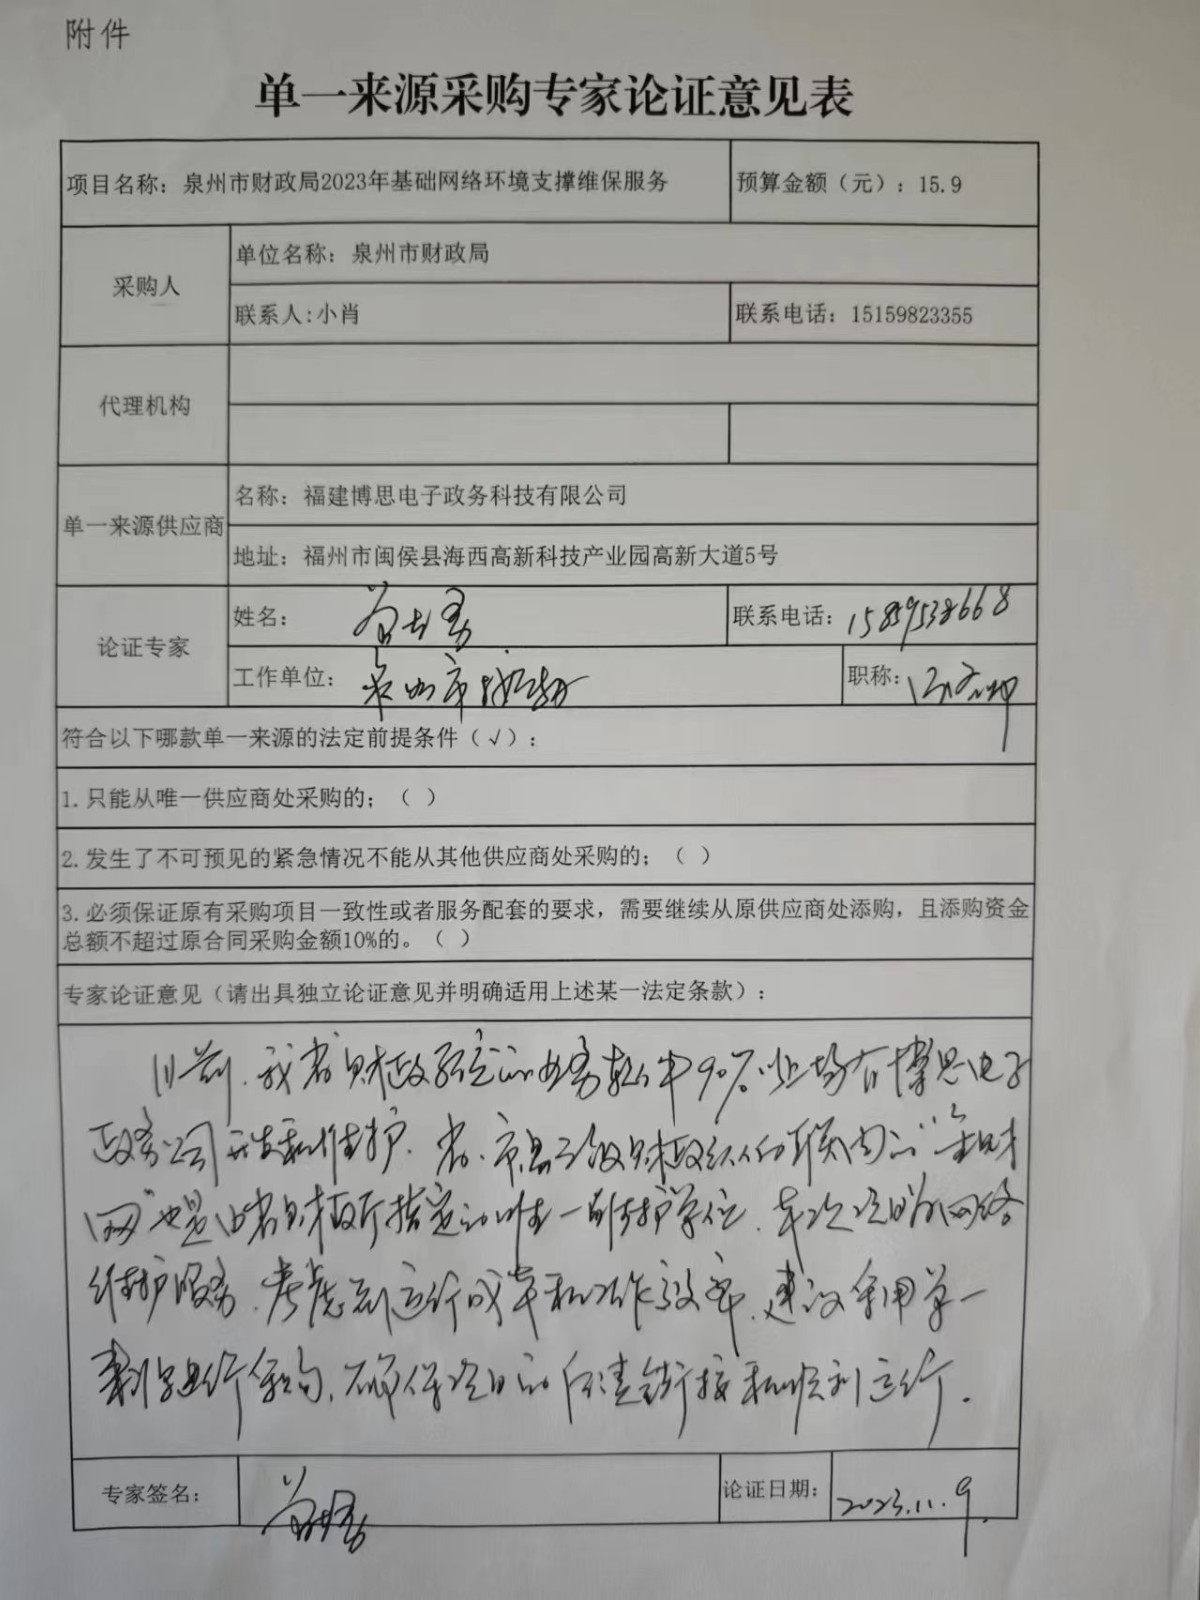 附件
单一来源采购专家论证意见表
项目名称：泉州市财政局2023年基础网络环境支撑维保服务 预算金额（元）：15.9
采购人
单位名称：泉州市财政局
联系人:小肖 联系电话：15159823355
代理机构
单一来源供应商
名称：福建博思电子政务科技有限公司
地址：福州市闽侯县海西高新科技产业园高新大道5号
论证专家
姓名： 联系电话：15859538668
工作单位： 职称：
符合以下哪款单一来源的法定前提条件（√）：
1.只能从唯一供应商处采购的；（ ）
2.发生了不可预见的紧急情况不能从其他供应商处采购的；（ ）
3.必须保证原有采购项目一致性或者服务配套的要求，需要继续从原供应商处添购，且添购资金
总额不超过原合同采购金额10%的。（ ）
专家论证意见（请出具独立论证意见并明确适用上述某一法定条款）：
目前，我省财政系统的业务软件90%以上均由博思电子
政务公司开发和维护，省、市、县三级财政纵向联网的“金财
网”也是由省财政厅指定的唯一的维护单位，本次项目为网络
维护服务，考虑到运行成本和工作效率，建议采用单一
来源进行采购，确保项目的后续衔接和顺利运行。
专家签名： 论证日期：2023.11.9.